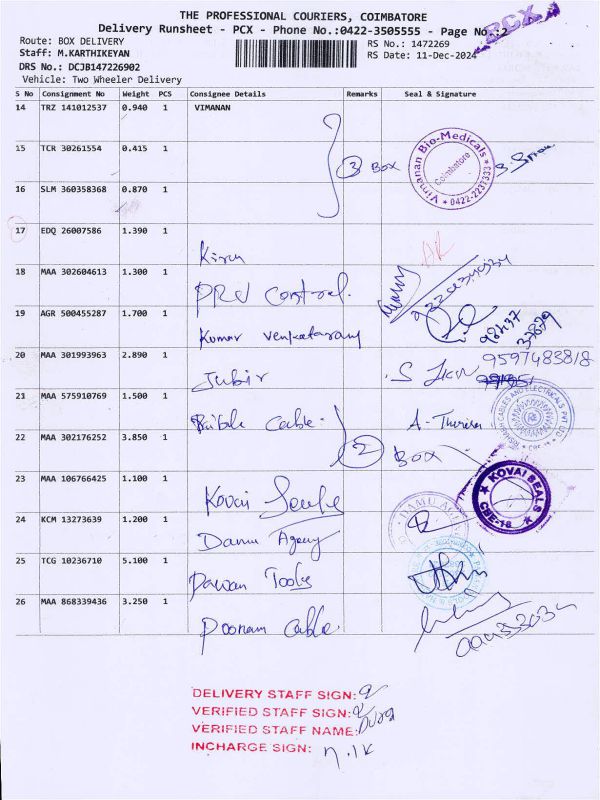 THE PROFESSIONAL COURIERS, COIMBATORE
Delivery Runsheet - PCX - Phone No.:0422-3505555 - Page No.:2
PCX
Route: BOX DELIVERY
Staff: M.KARTHIKEYAN
DRS No.: DCJB147226902
Vehicle: Two Wheeler Delivery
RS No.: 1472269
RS Date: 11-Dec-2024
S No Consignment No Weight PCS Consignee Details Remarks Seal & Signature
14 TRZ 141012537 0.940 1 VIMANAN
15 TCR 30261554 0.415 1
3 BOX
Vimanan Bio-Medicals * 0422-2237333 *
Coimbatore
16 SLM 360358368 0.870 1
17 EDQ 26007586 1.390 1 Kiran
18 MAA 302604613 1.300 1 Control.
19 AGR 500455287 1.700 1 Kumar Venkataram
98437
37879
20 MAA 301993963 2.890 1 Jubir
9597483818
21 MAA 575910769 1.500 1 Cable
22 MAA 302176252 3.850 1
2 BOX
23 MAA 106766425 1.100 1 Kovai Seals
KOVAI SEALS
CBE-18
24 KCM 13273639 1.200 1 Damu Agency
25 TCG 10236710 5.100 1 Pawan Tools
26 MAA 868339436 3.250 1 Poonam Cable
DELIVERY STAFF SIGN:
VERIFIED STAFF SIGN:
VERIFIED STAFF NAME:
INCHARGE SIGN: